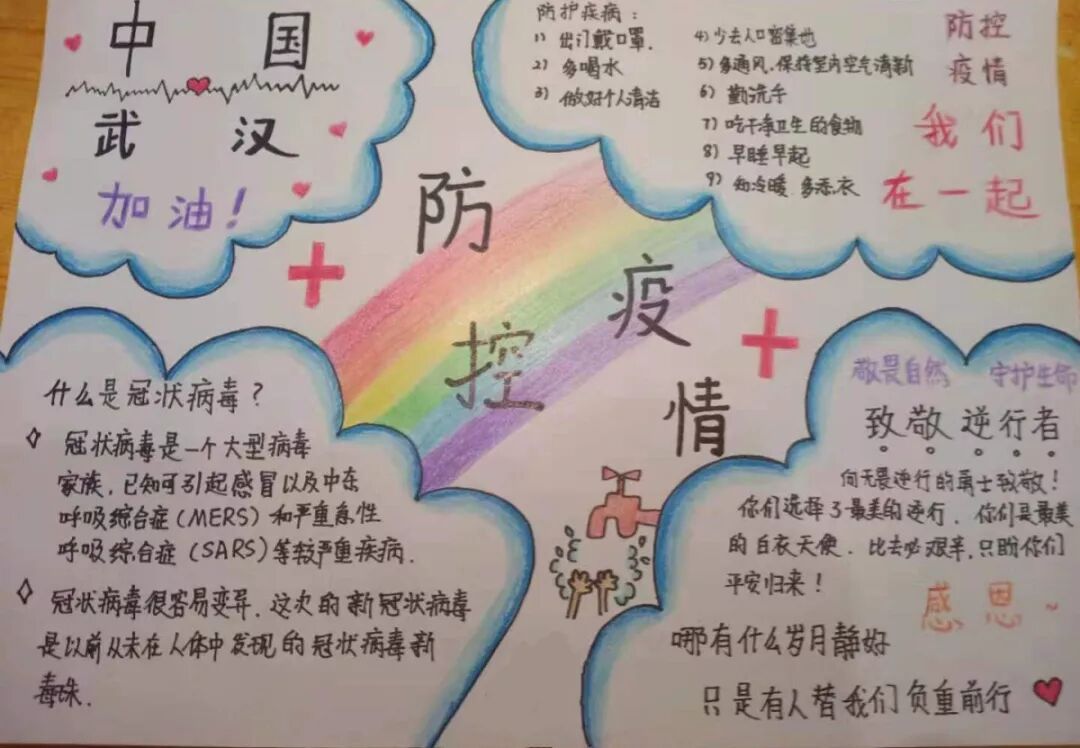 中 国
武 汉
加油!
防护疾病:
1) 出门戴口罩.
2) 多喝水
3) 做好个人清洁
4) 少去人口密集地
5) 多通风、保持室内空气清新
6) 勤洗手
7) 吃干净卫生的食物
8) 早睡早起
9) 知冷暖.多添衣
防控
疫情
我们
在一起
防
控
疫
情
什么是冠状病毒?
冠状病毒是一个大型病毒
家族,已知可引起感冒以及中东
呼吸综合症(MERS)和严重急性
呼吸综合症(SARS)等较严重疾病.
冠状病毒很容易变异.这次的新冠状病毒
是以前从未在人体中发现的冠状病毒新
毒珠.
敬畏自然 守护生命
致敬逆行者
向无畏逆行的勇士致敬!
你们选择了最美的逆行.你们是最美
的白衣天使.比去必艰辛,只盼你们
平安归来!
感恩~
哪有什么岁月静好
只是有人替我们负重前行